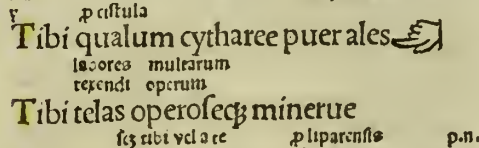 ꝓ ciſtula
Tibi qualum cytharee puer ales
labores multarum
texendi operum
Tibi telas operoſeqꝫ minerue
ſcꝫ tibi vel a te ꝓ liparenſis p.n.